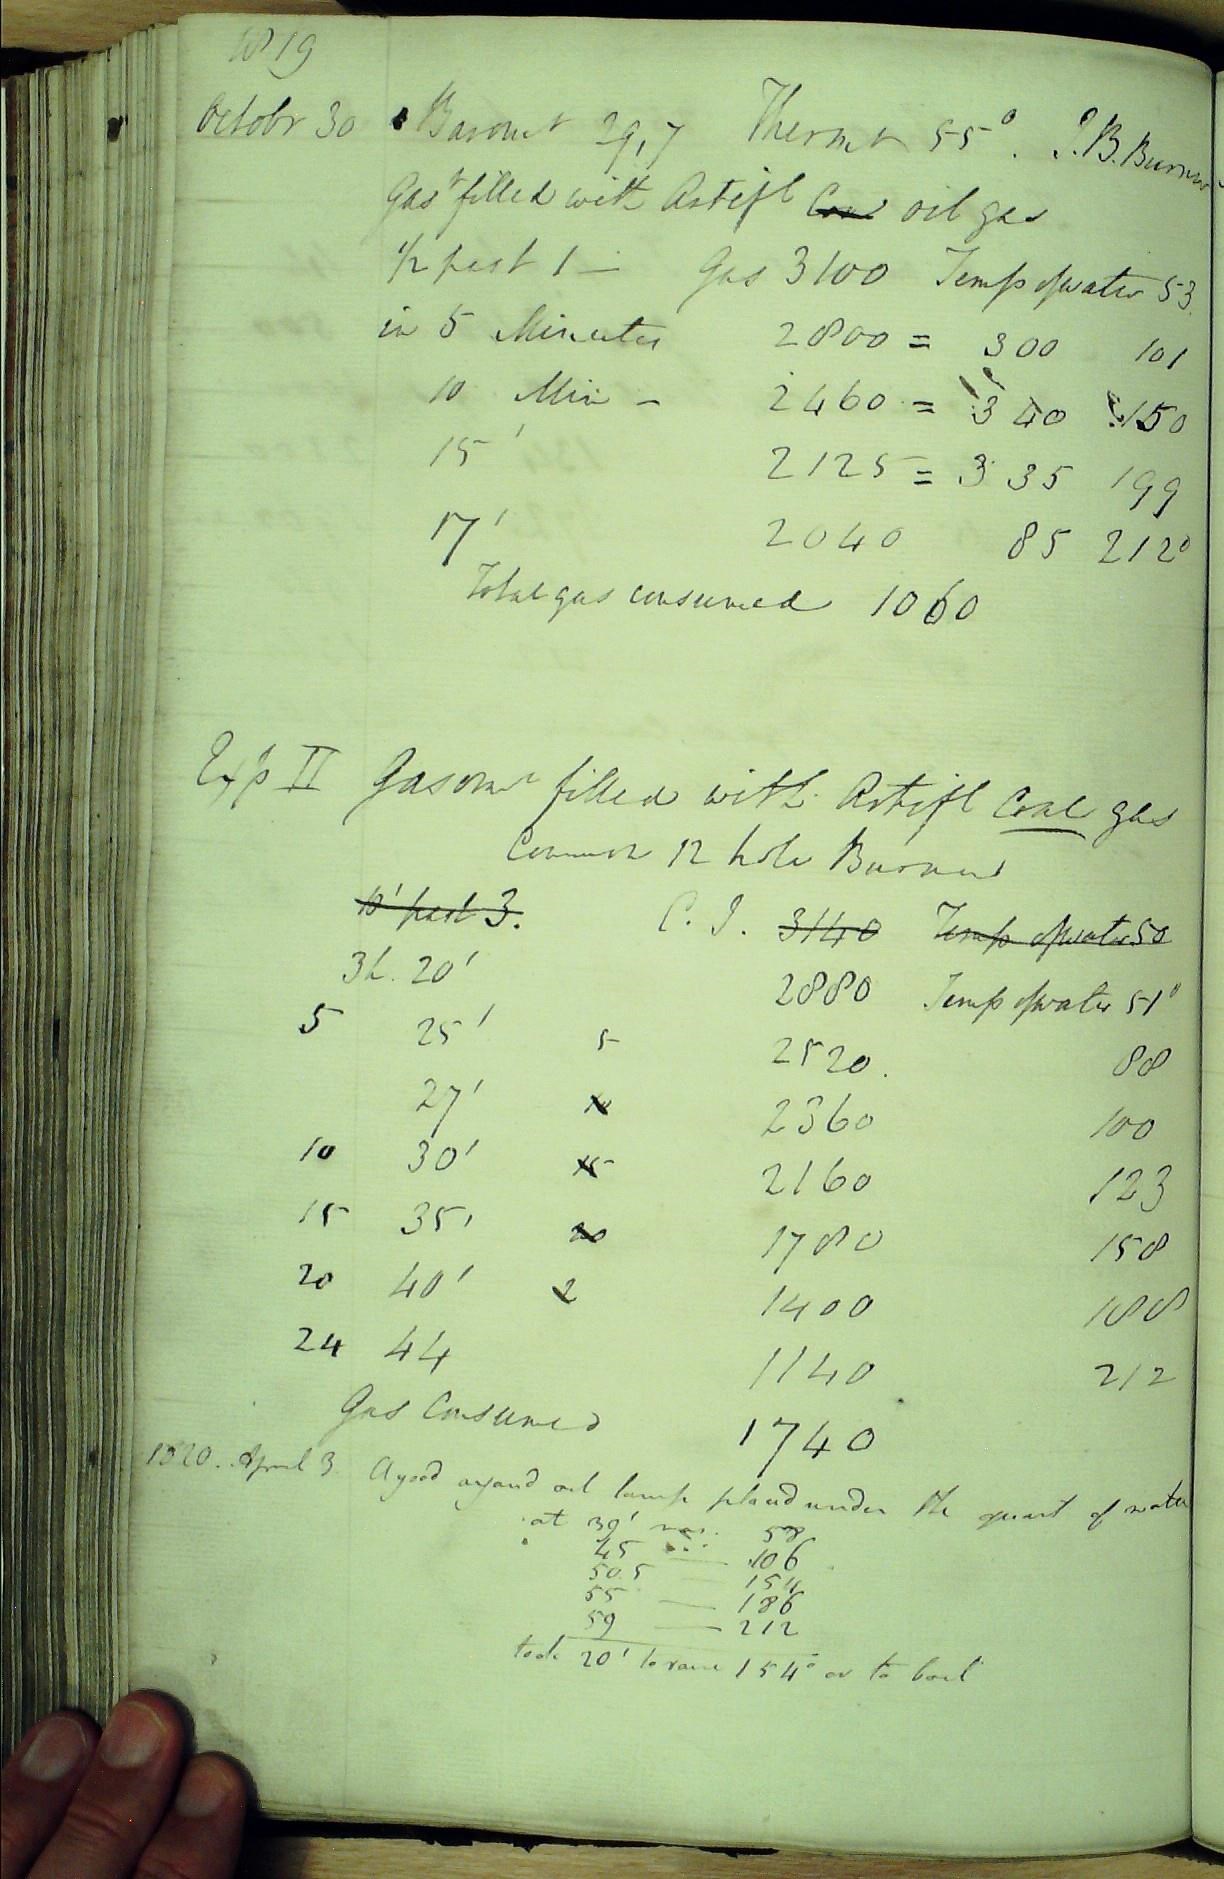 1819
Octobr 30 Baromtr 29,7 Thermtr 55°. J.B. Burner
Gasr filled with Artifl Coal oil gas
1/2 past 1 — Gas 3100 Temp of water 53
in 5 Minutes 2800 = 300 101
10 Min – 2460 = 340 150
15' 2125 = 335 199
17' 2040 85 212°
Total gas consumed 1060
Exp II Gasomr filled with Artifl Coal gas
Common 12 hole Burner
10' past 3. C. I. 3140 Temp of water 50
3h. 20' 2880 Temp of water 51°
5 25' 5 2520. 88
27' 10 2360 100
10 30' 15 2160 123
15 35' 20 1780 158
20 40' 2 1400 188
24 44 1140 212
Gas Consumed 1740
1820. April 3. A good argand oil lamp placed under the quart of water
at 39' was 58
45 — 106
50.5 — 154
55 — 186
59 — 212
took 20' to raise 154° or to boil